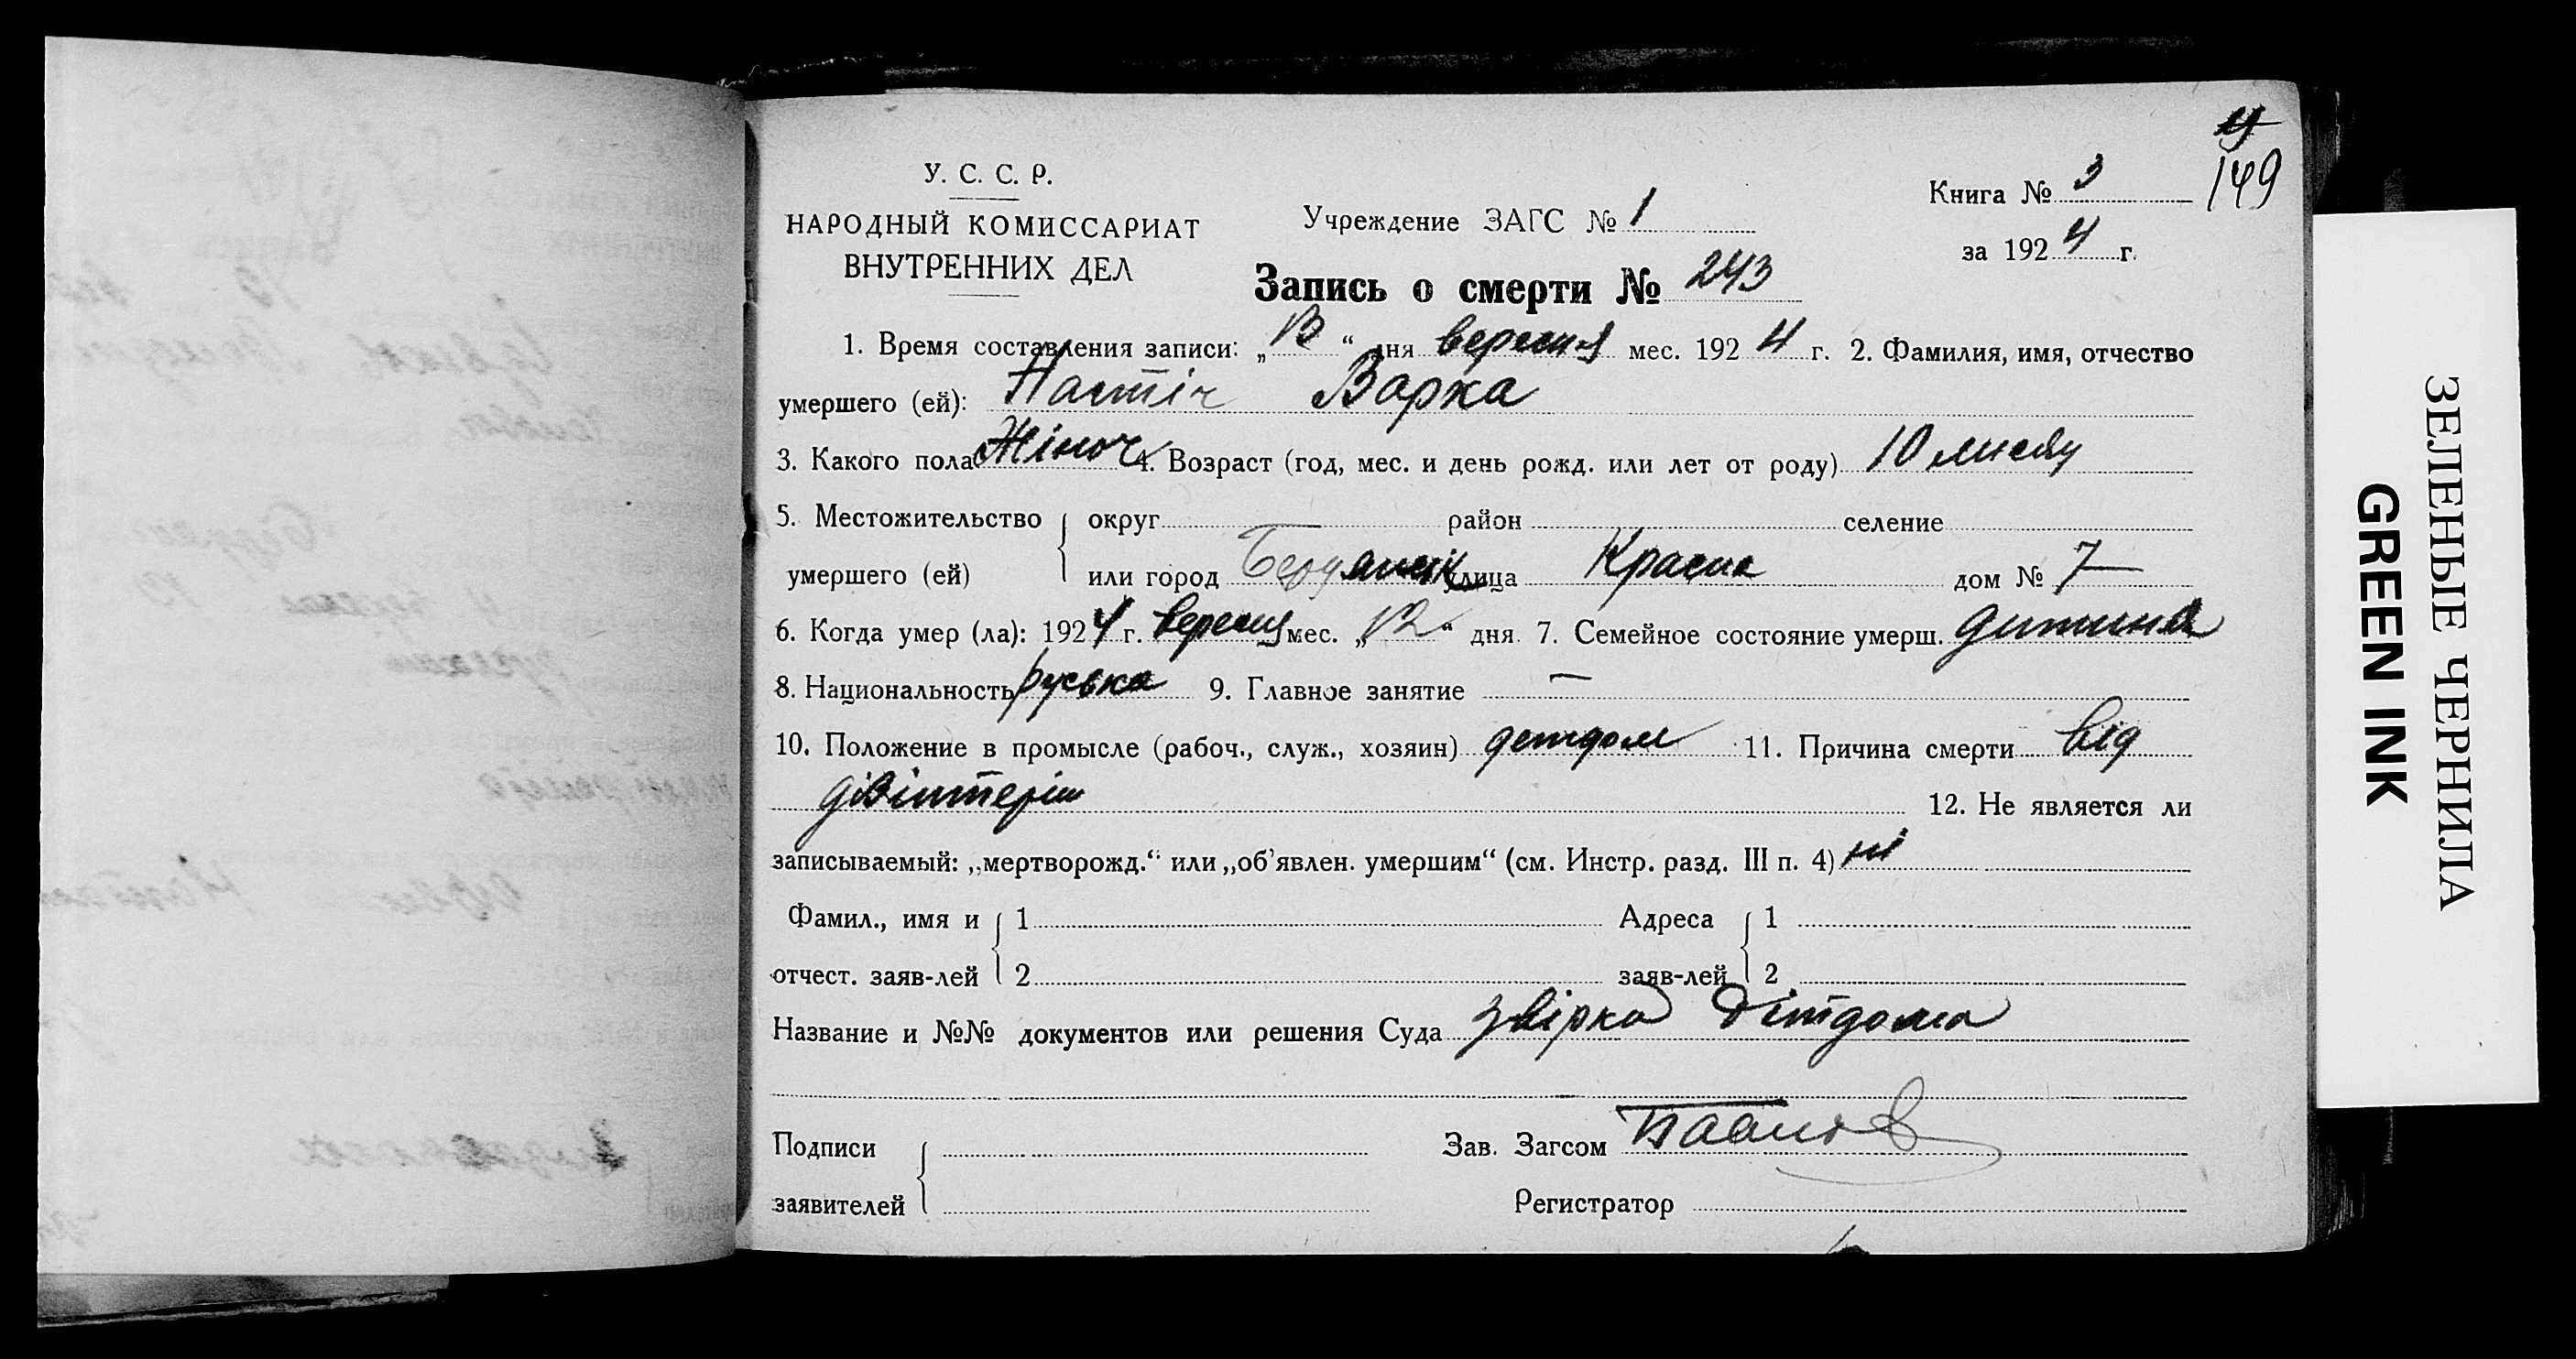 149
У. С. С. Р.
НАРОДНЫЙ КОМИССАРИАТ
ВНУТРЕННИХ ДЕЛ
Учреждение ЗАГС № 1
Книга № 3
за 1924 г.
Запись о смерти № 243
1. Время составления записи: „13“ дня вересня мес. 1924 г. 2. Фамилия, имя, отчество
умершего (ей): Настіч Варка
3. Какого пола Жіноч 4. Возраст (год, мес. и день рожд. или лет от роду) 10 місяц
5. Местожительство умершего (ей) { округ район селение
или город Бердянськ улица Красна дом № 7
6. Когда умер (ла): 1924 г. вересня мес. „12“ дня 7. Семейное состояние умерш. дитина
8. Национальность руська 9. Главное занятие —
10. Положение в промысле (рабоч., служ., хозяин) детдом 11. Причина смерти від
дізінтерії 12. Не является ли
записываемый: „мертворожд.“ или „об’явлен. умершим“ (см. Инстр. разд. III п. 4) ні
Фамил., имя и { 1 Адреса { 1
отчест. заяв-лей 2 заяв-лей 2
Название и №№ документов или решения Суда звірка Дітдома
Подписи Зав. Загсом
заявителей Регистратор
ЗЕЛЕНЫЕ ЧЕРНИЛА
GREEN INK